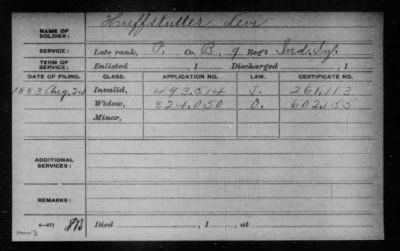 NAME OF SOLDIER: Huffstutter Levi
SERVICE: Late rank, P. Co. B, 9 Reg't Ind. Inf.
TERM OF SERVICE: Enlisted , 1 Discharged , 1
DATE OF FILING. CLASS. APPLICATION NO. LAW. CERTIFICATE NO.
1883 Aug. 24 Invalid, 493.514 J. 261.113
Widow, 824.050 O. 602.155
Minor,
ADDITIONAL SERVICES:
REMARKS:
Died , 1 , at